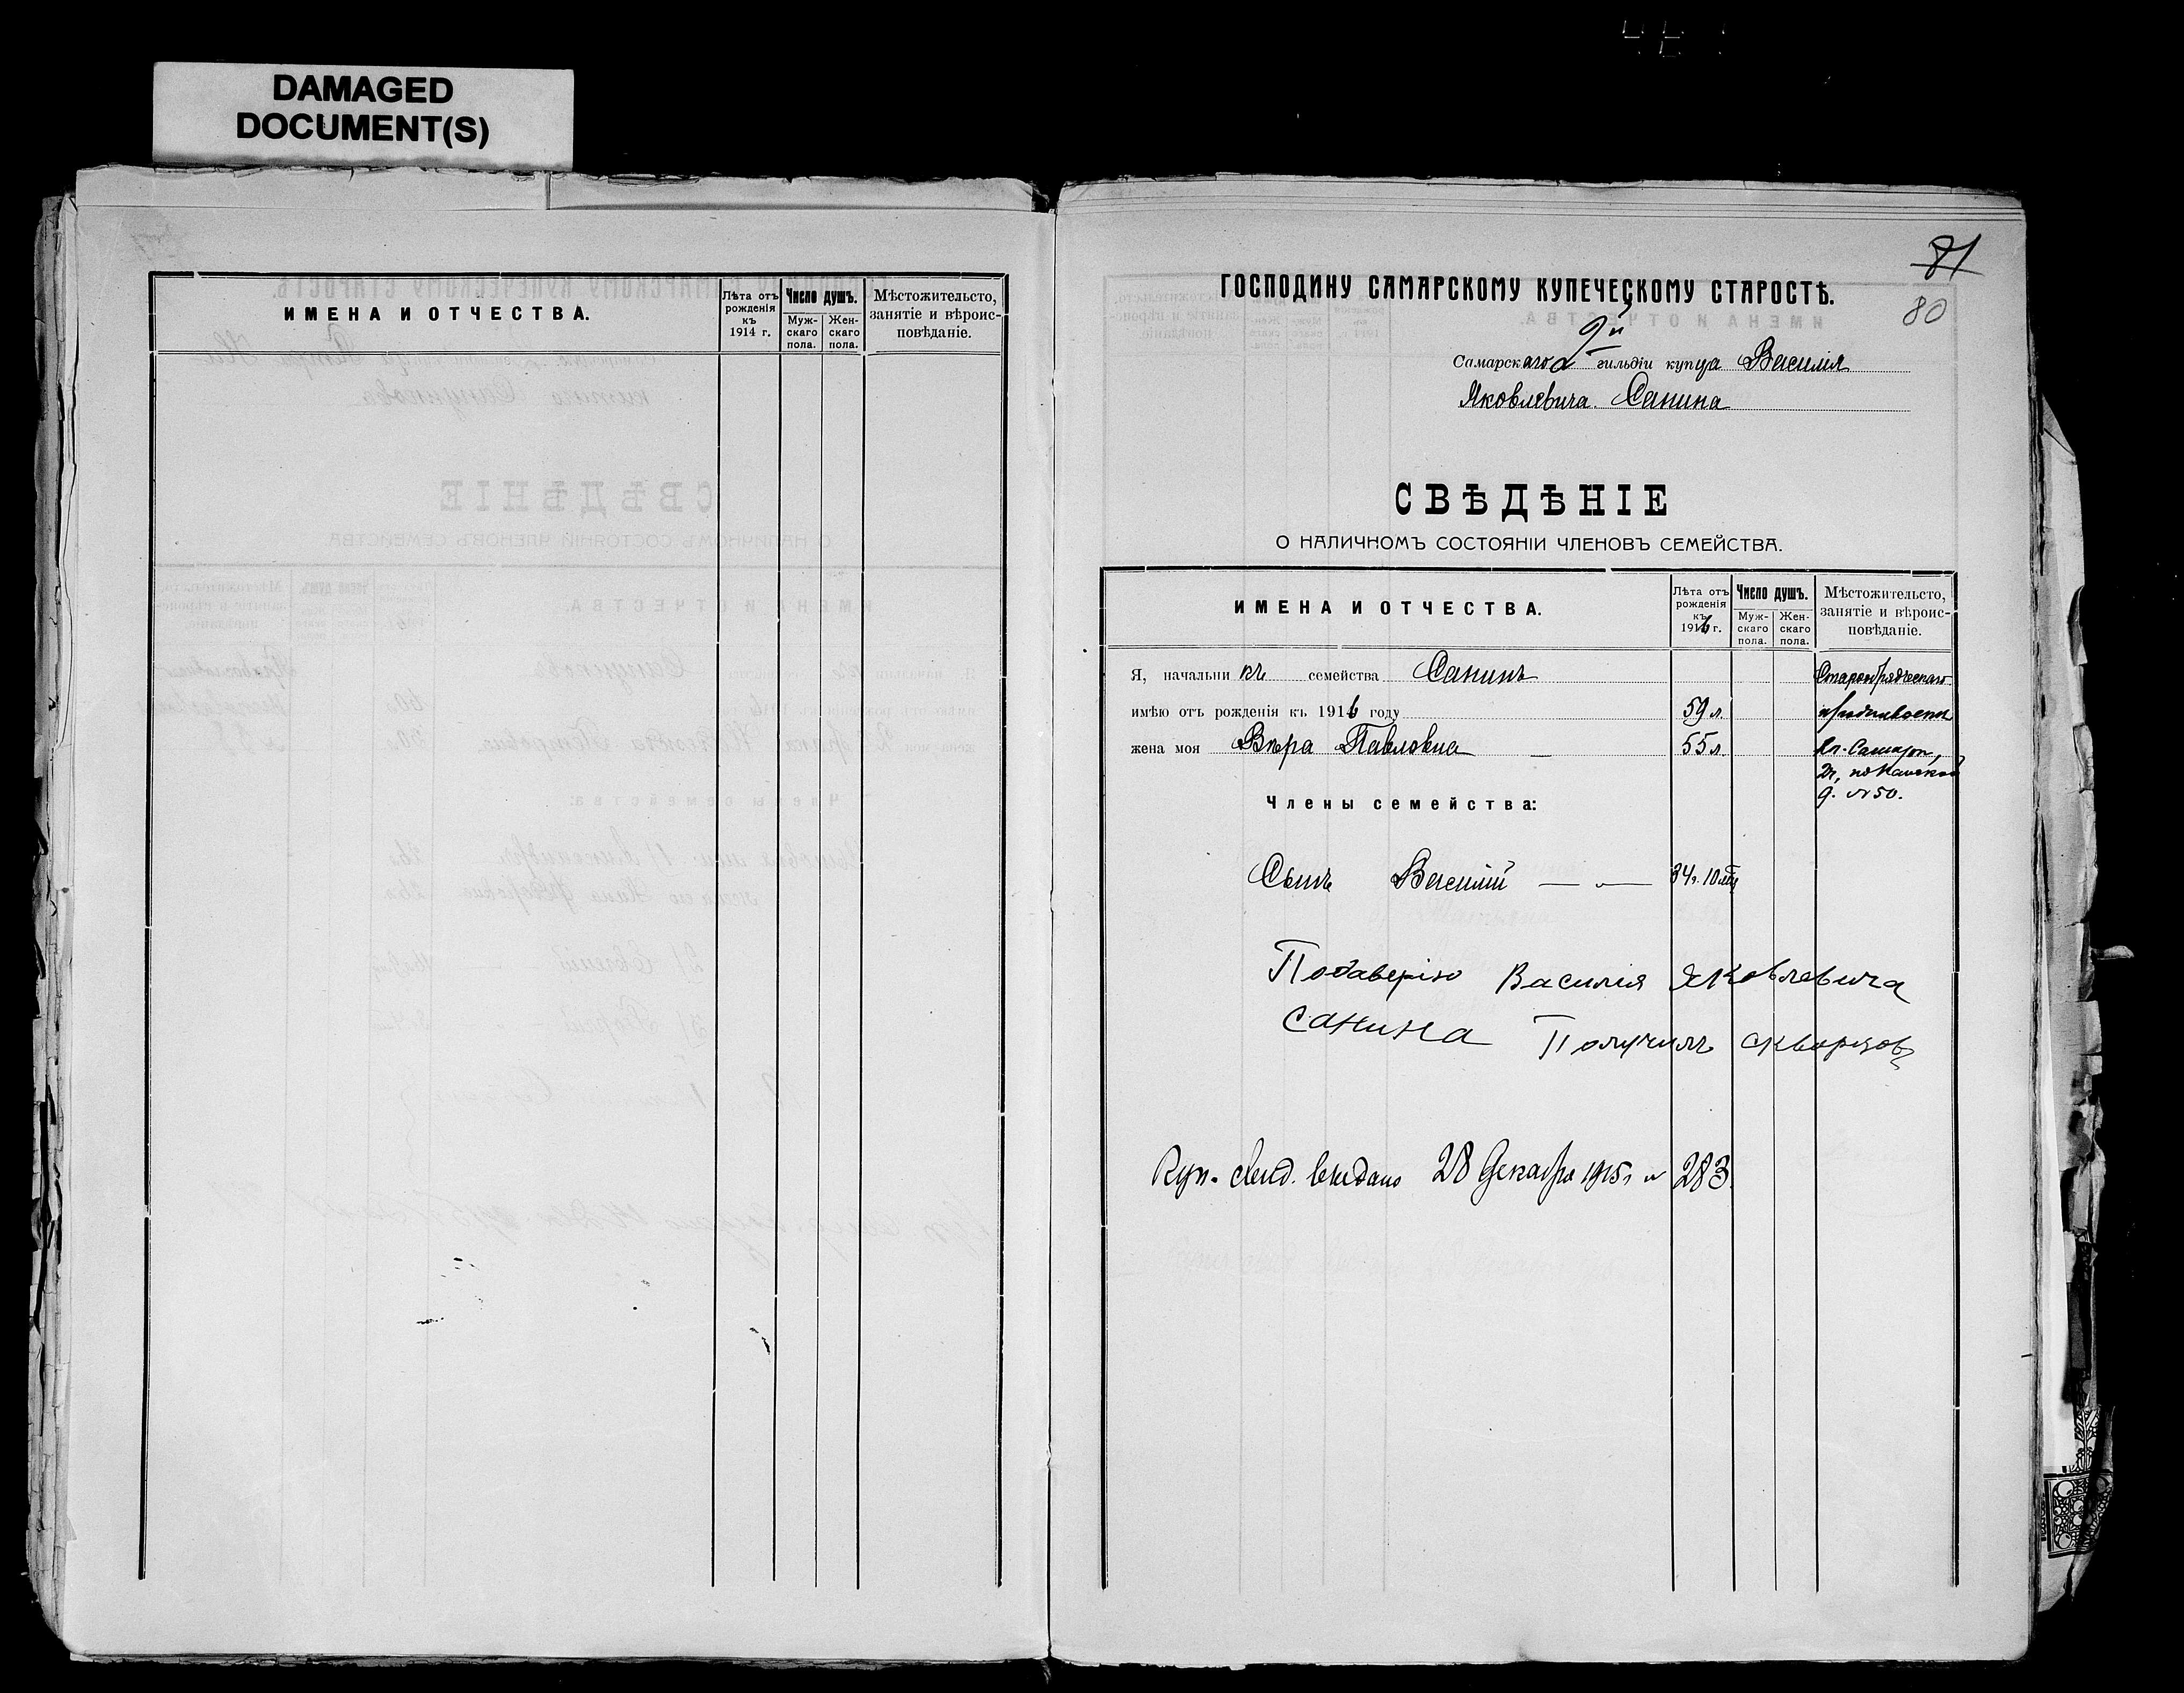 DAMAGED
DOCUMENT(S)
ИМЕНА И ОТЧЕСТВА.
Лѣта отъ рожденія къ 1914 г.
Число душъ.
Муж-скаго пола.
Жен-скаго пола.
Мѣстожительсто, занятіе и вѣроис-повѣданіе.
81
80
ГОСПОДИНУ САМАРСКОМУ КУПЕЧЕСКОМУ СТАРОСТѢ.
Самарскаго 2й гильдіи купца Василія
Яковлевича Санина
СВѢДѢНІЕ
О НАЛИЧНОМЪ СОСТОЯНІИ ЧЛЕНОВЪ СЕМЕЙСТВА.
ИМЕНА И ОТЧЕСТВА.
Лѣта отъ рожденія къ 1916 г.
Число душъ.
Муж-скаго пола.
Жен-скаго пола.
Мѣстожительсто, занятіе и вѣроис-повѣданіе.
Я, начальникъ семейства Санинъ
Старообрядческаго
имѣю отъ рожденія къ 1916 году 59 л.
жена моя Вѣра Павловна 55 л.
г. Самара,
2ч,
д. № 50.
Члены семейства:
Сынъ Василій — " — 34 г. 10 м.
Подаверію Василия Яковлевича
Санина Получилъ Скворцовъ
Куп. свид. выдано 28 Декабря 1915 г № 283